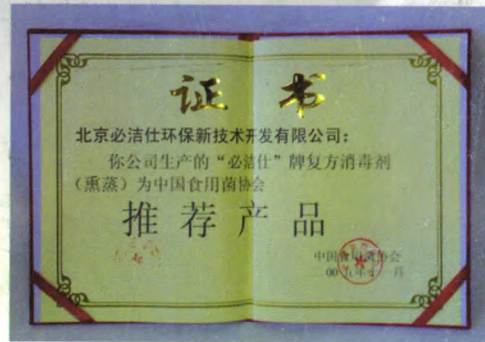 证书
北京必洁仕环保新技术开发有限公司：
你公司生产的“必洁仕”牌复方消毒剂
（熏蒸）为中国食用菌协会
推荐产品
中国食用菌协会